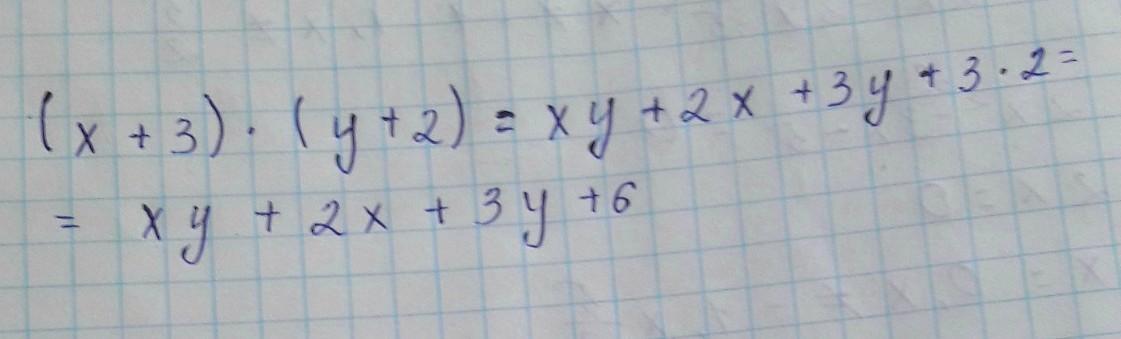 (x + 3) · (y + 2) = xy + 2x + 3y + 3 · 2 =
= xy + 2x + 3y + 6